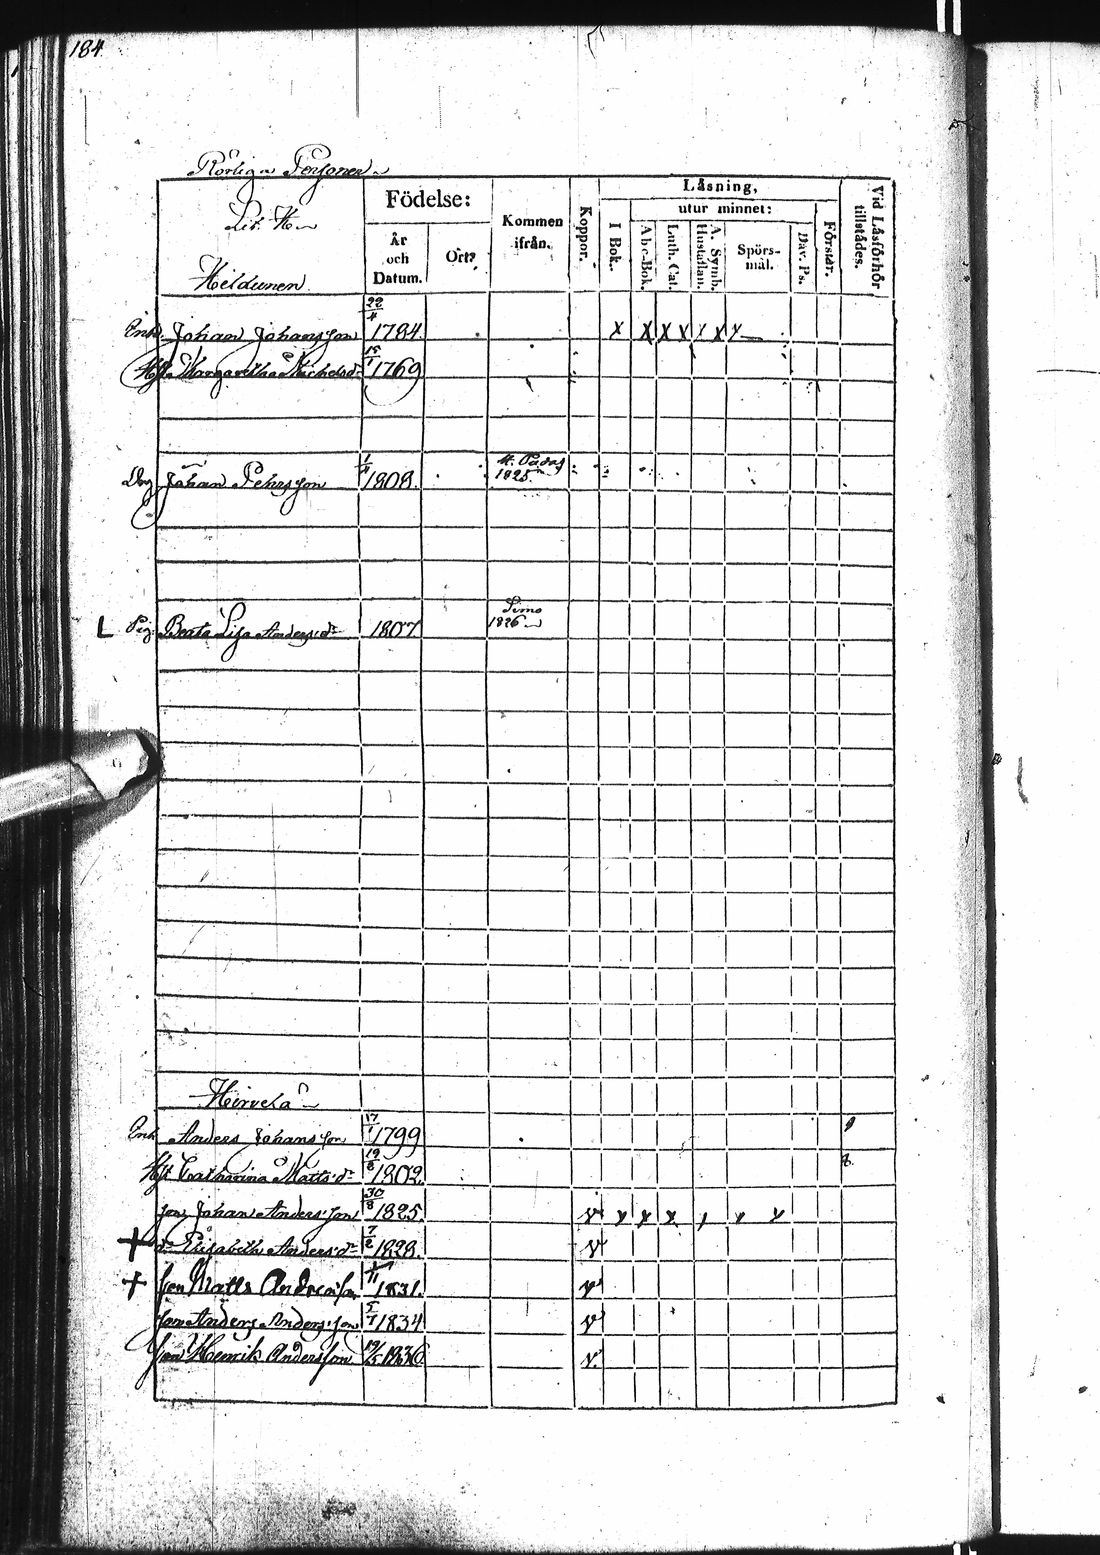 184
Rörliga Personer
Litt. H
Födelse:
År och Datum.
Ort?
Kommen ifrån.
Koppor.
Läsning,
I Bok.
utur minnet:
Abc-Bok.
Luth. Cat.
A. Symb. Hustaflan.
Spörs-mål.
Dav. Ps.
Förstår.
Vid Läsförhör tillstådes.
Heldunen
Enkl. Johan Johansson 22/4 1784. x x x x / x x
Hust. Margaretha Michelsdr 15/1 1769
Drg Johan Pehrsson 1808. 1825.
L Pig. Beata Lisa Andersdr 1807 1826
Hirvelä
Enk Anders Johansson 17/1 1799
Hust Catharina Mattsdr 19/8 1802.
son Johan Andersson 30/8 1825. v
+ dr Elisabeth Andersdr 7/2 1828. v
+ son Matts Andersson /11 1831. v
son Anders Andersson 5/7 1834 v
son Henrik Andersson 19/5 1836 v.